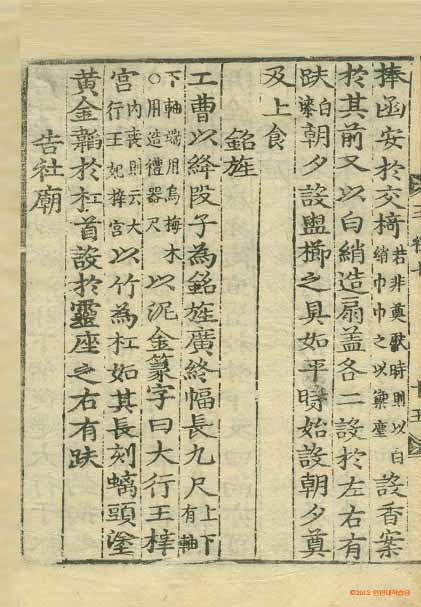 捧函安於交椅若非奠獻時則以白綃巾巾之以禦塵設香案
於其前又以白綃造扇盖各二設於左右有
趺白漆朝夕設盥櫛之具如平時始設朝夕奠
及上食
銘旌
工曹以絳段子為銘旌廣終幅長九尺上下有軸
下軸端用烏梅木○用造禮器尺以泥金篆字曰大行王梓
宮內喪則云大行王妃梓宮以竹為杠如其長刻螭頭塗
黃金韜於杠首設於靈座之右有趺
告社廟